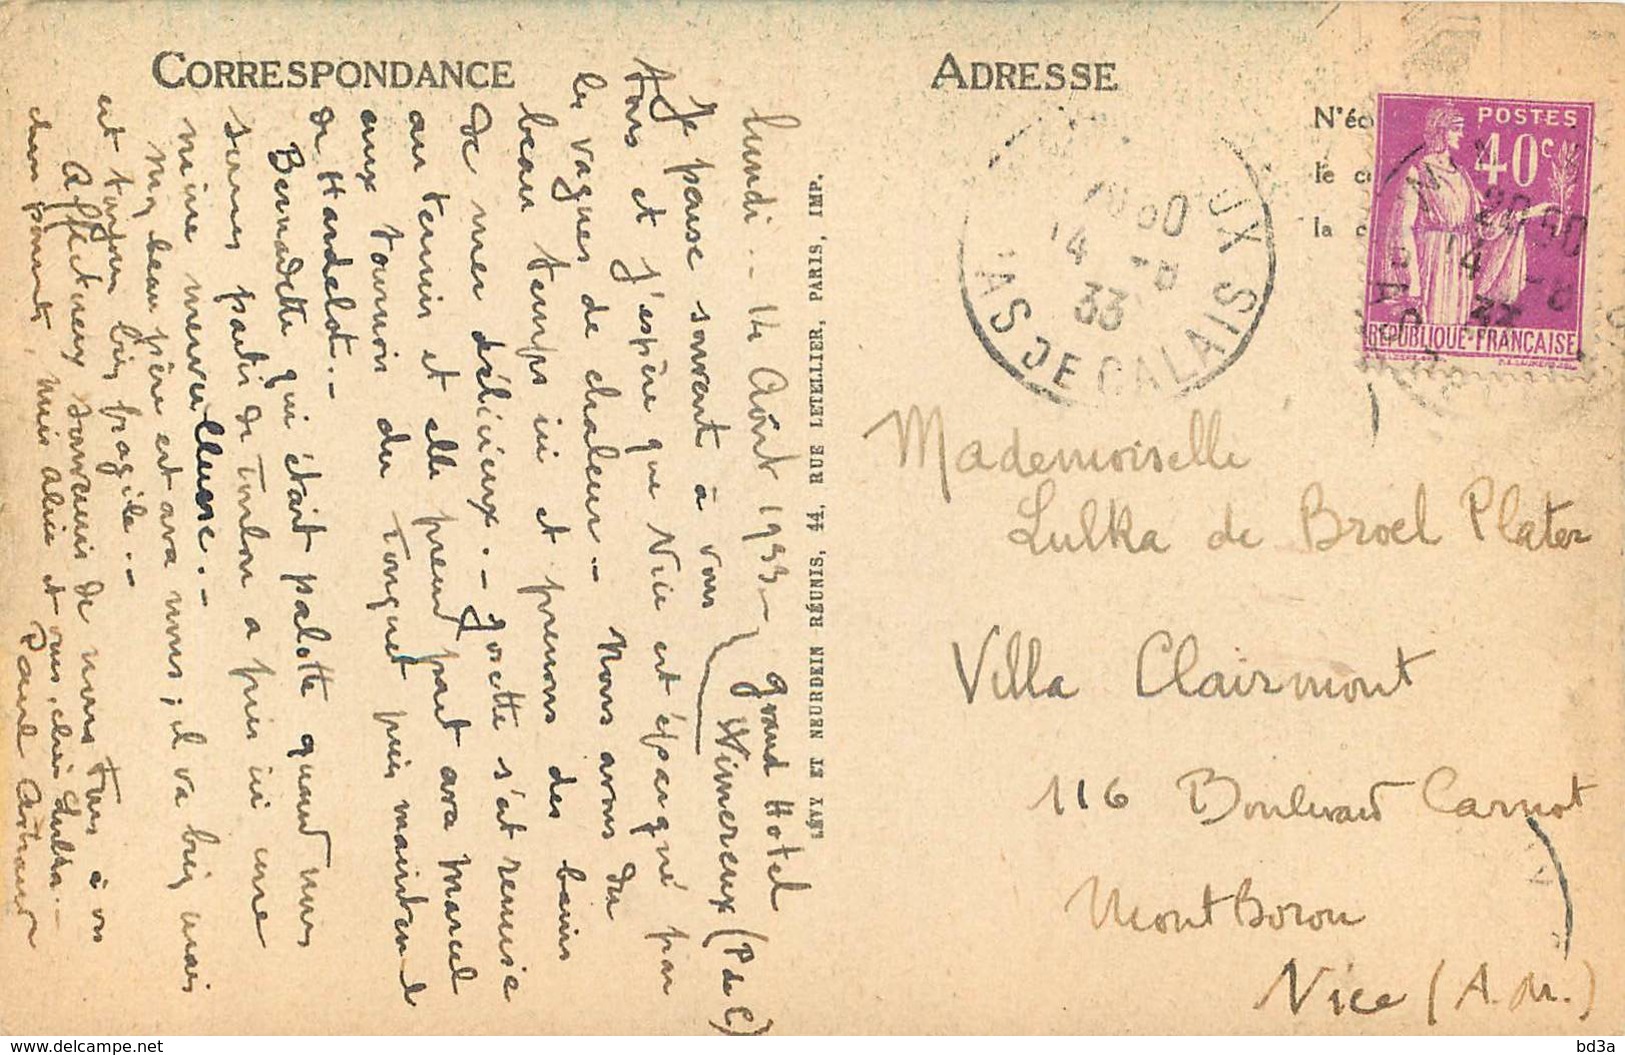 CORRESPONDANCE
lundi.. 14 Août 1933 – grand Hotel
Wimereux (P de C)
Je pense souvent à vous
tous et j'espère que Nice est épargné par
les vagues de chaleur.– Nous avons du
beau temps ici et prenons des bains
de mer délicieux.– Josette s'est remise
au tennis et elle prend part avec Marcel
aux tournois du Touquet puis maintenant
de Hardelot.–
Bernadette qui était palotte quand nous
sommes partis de Toulon a pris ici une
mine merveilleuse.–
Mon beau père est avec nous, il va bien mais
est toujours bien fragile.–
Affectueux souvenirs de nous tous à vos
chers parents, Miss Alice et vous, chère Lulka.–
Paule
LÉVY ET NEURDEIN RÉUNIS, 44, RUE LETELLIER, PARIS, IMP.
ADRESSE
N'éc
le c
la c
POSTES
40c
REPUBLIQUE FRANÇAISE
UX
14 -8
33
PAS DE CALAIS
14 -8
33
Mademoiselle
Lulka de Broel Plater
Villa Clairmont
116 Boulevard Carnot
Mont Boron
Nice (A. M.)
https://www.delcampe.net
bd3a